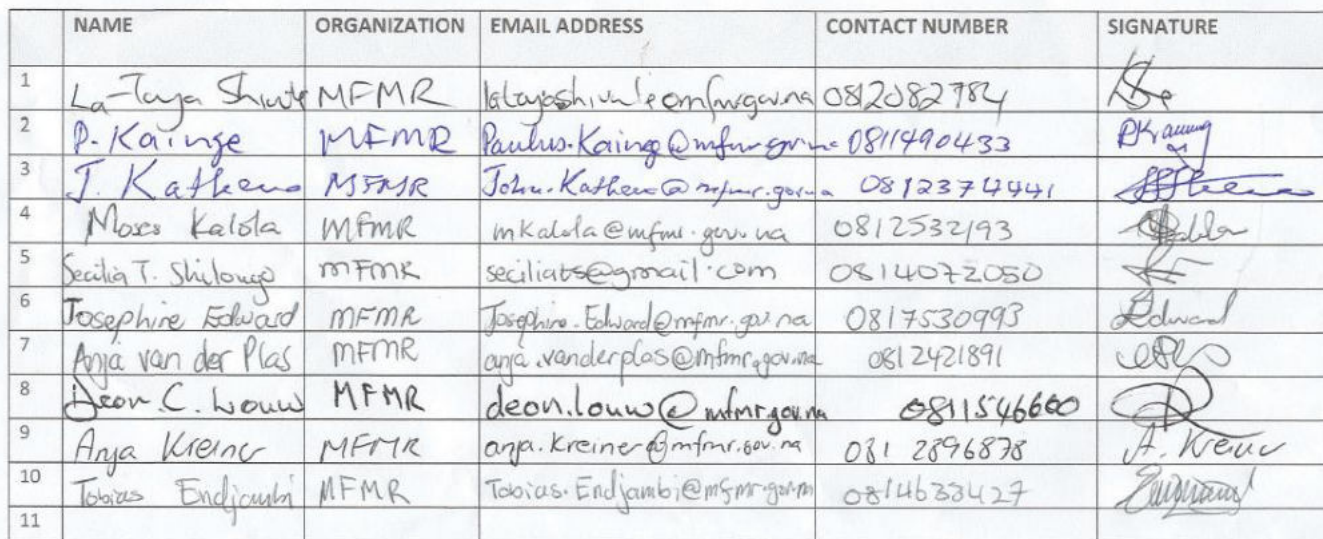 NAME ORGANIZATION EMAIL ADDRESS CONTACT NUMBER SIGNATURE
1 La-Taya MFMR 0812082784
2 P. Kainge MFMR Paulus.Kainge@mfmr.gov.na 0811490433
3 J. Kathena MFMR John.Kathena@mfmr.gov.na 0812374441
4 Moses Kalola MFMR mkalola@mfmr.gov.na 0812532193
5 Secilia T. Shilongo MFMR seciliats@gmail.com 0814072050
6 Josephine Edward MFMR Josephine.Edward@mfmr.gov.na 0817530993 Edward
7 Anja van der Plas MFMR anja.vanderplas@mfmr.gov.na 0812421891
8 Deon.C. Louw MFMR deon.louw@mfmr.gov.na 0811546600
9 Anja Kreiner MFMR anja.kreiner@mfmr.gov.na 081 2896878 A. Kreiner
10 Tobias Endjambi MFMR Tobias.Endjambi@mfmr.gov.na 0814633427
11